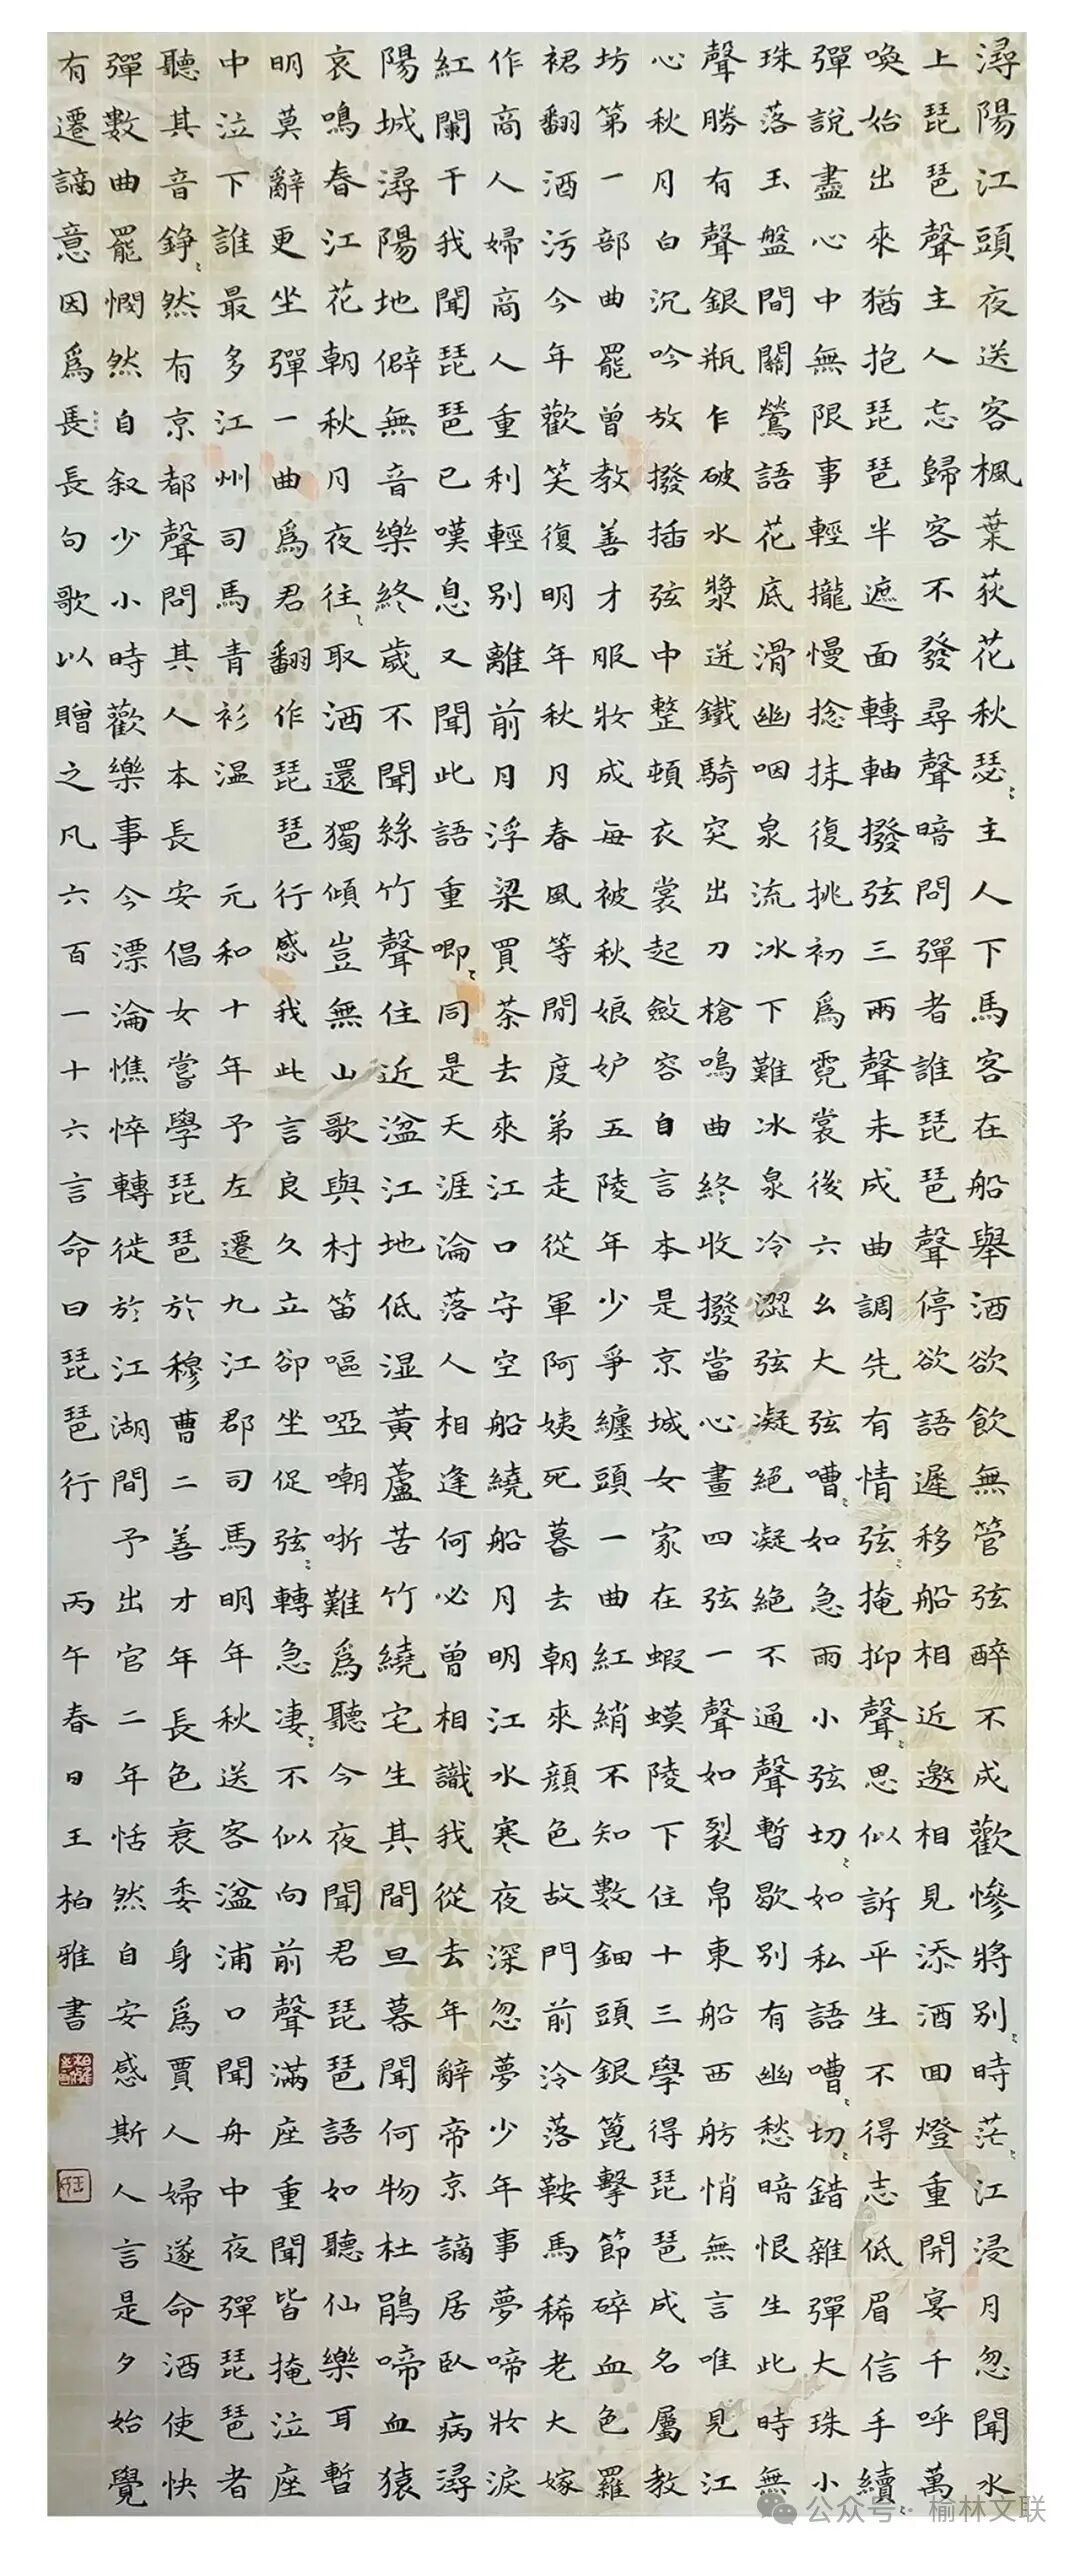 潯陽江頭夜送客楓葉荻花秋瑟〻主人下馬客在船舉酒欲飲無管弦醉不成歡慘將別〻時茫〻江浸月忽聞水
上琵琶聲主人忘歸客不發尋聲暗問彈者誰琵琶聲停欲語遲移船相近邀相見添酒回燈重開宴千呼萬
喚始出來猶抱琵琶半遮面轉軸撥弦三兩聲未成曲調先有情弦〻掩抑聲〻思似訴平生不得志低眉信手續〻
彈說盡心中無限事輕攏慢捻抹復挑初爲霓裳後六幺大弦嘈〻如急雨小弦切〻如私語嘈〻切〻錯雜彈大珠小
珠落玉盤間關鶯語花底滑幽咽泉流冰下難冰泉冷澀弦凝絕凝絕不通聲暫歇別有幽愁暗恨生此時無
聲勝有聲銀瓶乍破水漿迸鐵騎突出刀槍鳴曲終收撥當心畫四弦一聲如裂帛東船西舫悄無言唯見江
心秋月白沉吟放撥插弦中整頓衣裳起斂容自言本是京城女家在蝦蟆陵下住十三學得琵琶成名屬教
坊第一部曲罷曾教善才服妝成每被秋娘妒五陵年少爭纏頭一曲紅綃不知數鈿頭銀篦擊節碎血色羅
裙翻酒污今年歡笑復明年秋月春風等閒度弟走從軍阿姨死暮去朝來顏色故門前冷落鞍馬稀老大嫁
作商人婦商人重利輕別離前月浮梁買茶去來江口守空船繞船月明江水寒夜深忽夢少年事夢啼妝淚
紅闌干我聞琵琶已嘆息又聞此語重唧〻同是天涯淪落人相逢何必曾相識我從去年辭帝京謫居臥病潯
陽城潯陽地僻無音樂終歲不聞絲竹聲住近湓江地低湿黃蘆苦竹繞宅生其間旦暮聞何物杜鵑啼血猿
哀鳴春江花朝秋月夜往〻取酒還獨傾豈無山歌與村笛嘔啞嘲哳難爲聽今夜聞君琵琶語如聽仙樂耳暫
明莫辭更坐彈一曲爲君翻作琵琶行感我此言良久立卻坐促弦〻轉急淒〻不似向前聲滿座重聞皆掩泣座
中泣下誰最多江州司馬青衫温 元和十年予左遷九江郡司馬明年秋送客湓浦口聞舟中夜彈琵琶者
聽其音錚〻然有京都聲問其人本長安倡女嘗學琵琶於穆曹二善才年長色衰委身爲賈人婦遂命酒使快
彈數曲罷憫然自叙少小時歡樂事今漂淪憔悴轉徙於江湖間予出官二年恬然自安感斯人言是夕始覺
有遷謫意因爲長長句歌以贈之凡六百一十六言命曰琵琶行 丙午春日王柏雅書
公众号·榆林文联